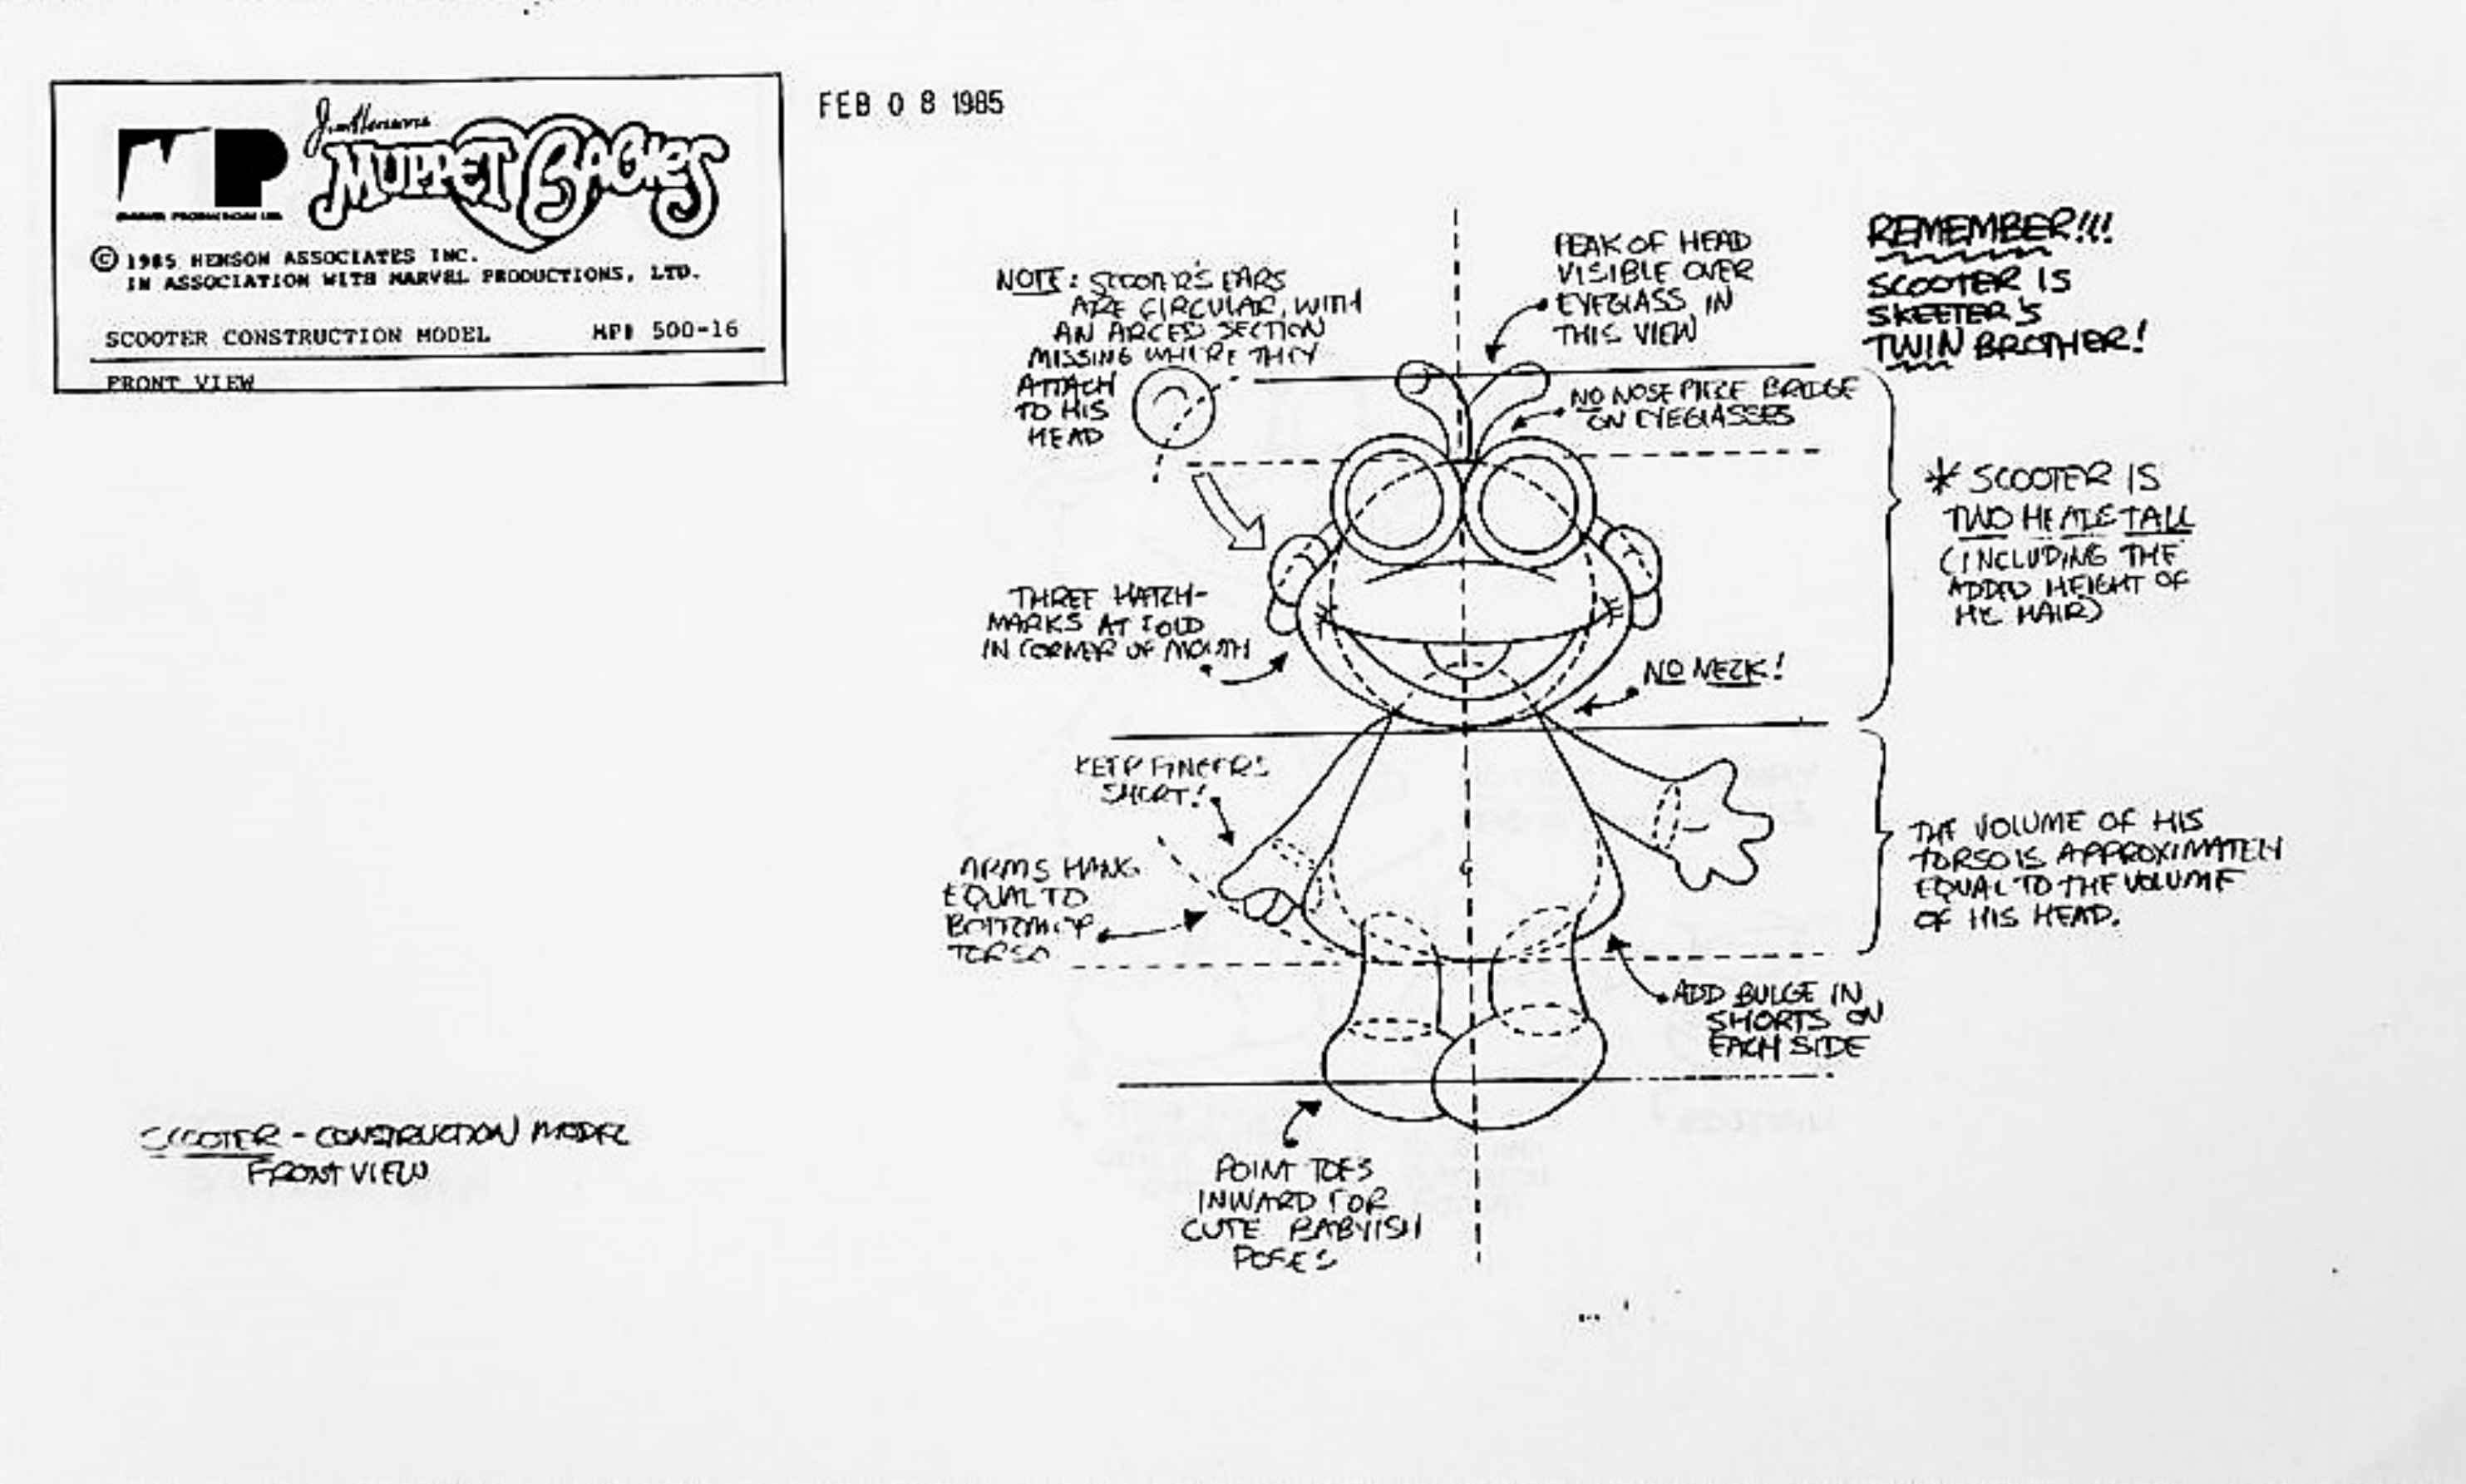 Jim Henson's
MUPPET BABIES
MP
MARVEL PRODUCTIONS LTD.
© 1985 HENSON ASSOCIATES INC.
IN ASSOCIATION WITH MARVEL PRODUCTIONS, LTD.
SCOOTER CONSTRUCTION MODEL MP# 500-16
FRONT VIEW
FEB 08 1985
NOTE: SCOOTER'S EARS
ARE CIRCULAR, WITH
AN ARCED SECTION
MISSING WHERE THEY
ATTACH
TO HIS
HEAD
PEAK OF HEAD
VISIBLE OVER
EYEGLASS IN
THIS VIEW
REMEMBER!!!
SCOOTER IS
SKEETER'S
TWIN BROTHER!
NO NOSE PIECE BRIDGE
ON EYEGLASSES
* SCOOTER IS
TWO HEADS TALL
(INCLUDING THE
ADDED HEIGHT OF
HIS HAIR)
THREE HATCH-
MARKS AT FOLD
IN CORNER OF MOUTH
NO NECK!
KEEP FINGERS
SHORT!
ARMS HANG
EQUAL TO
BOTTOM OF
TORSO
THE VOLUME OF HIS
TORSO IS APPROXIMATELY
EQUAL TO THE VOLUME
OF HIS HEAD.
ADD BULGE IN
SHORTS ON
EACH SIDE
POINT TOES
INWARD FOR
CUTE BABYISH
POSES
SCOOTER - CONSTRUCTION MODEL
FRONT VIEW